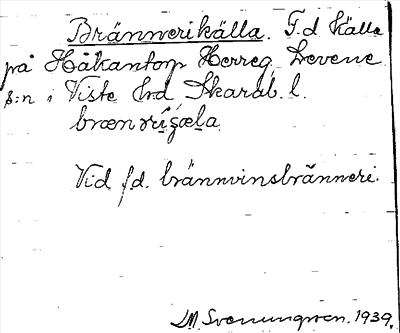 Brännerikälla. F.d. källa
på Håkantorp Herreg. Levene
s:n i Viste hrd Skarab. l.
brænərìʂæ̀la.
Vid f.d. brännvinsbränneri.
M. Svenungsson. 1939.